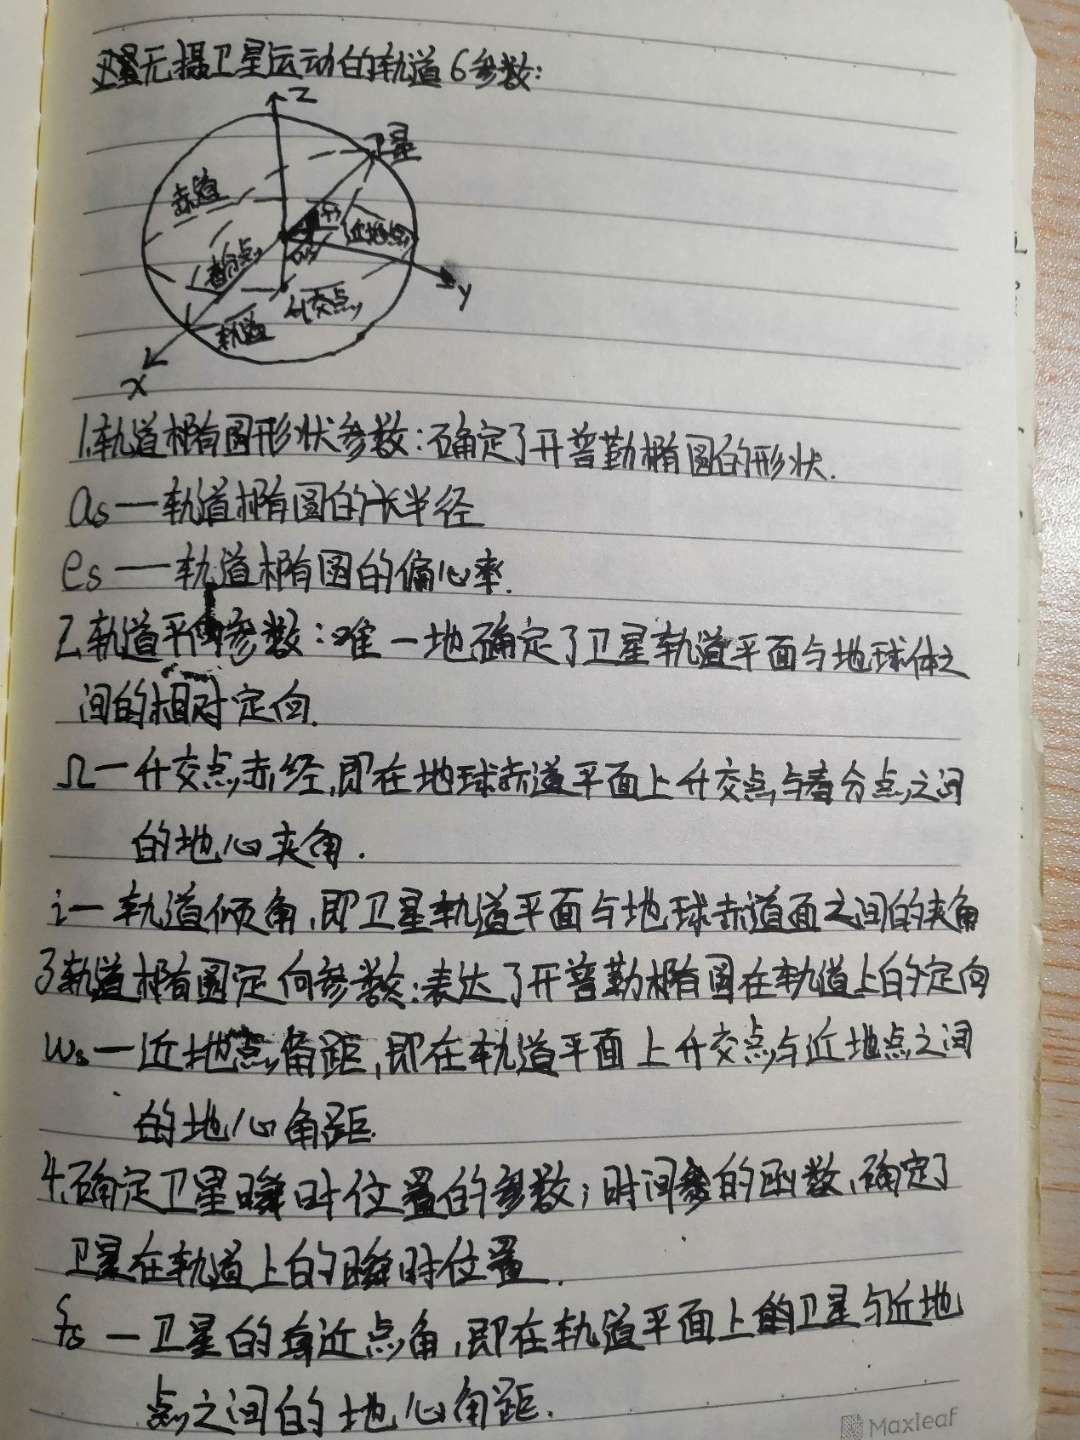 无摄卫星运动的轨道6参数:
Z
卫星
赤道
fs
近地点
春分点
ωs
y
升交点
轨道
x
1.轨道椭圆形状参数:确定了开普勒椭圆的形状.
as—轨道椭圆的长半径
es—轨道椭圆的偏心率.
2.轨道平面参数:唯一地确定了卫星轨道平面与地球体之
间的相对定向.
Ω—升交点赤经,即在地球赤道平面上升交点与春分点之间
的地心夹角.
i—轨道倾角,即卫星轨道平面与地球赤道面之间的夹角
3轨道椭圆定向参数:表达了开普勒椭圆在轨道上的定向
ws—近地点角距,即在轨道平面上升交点与近地点之间
的地心角距.
4.确定卫星瞬时位置的参数;时间的函数,确定了
卫星在轨道上的瞬时位置.
fs—卫星的真近点角,即在轨道平面上的卫星与近地
点之间的地心角距.
Maxleaf